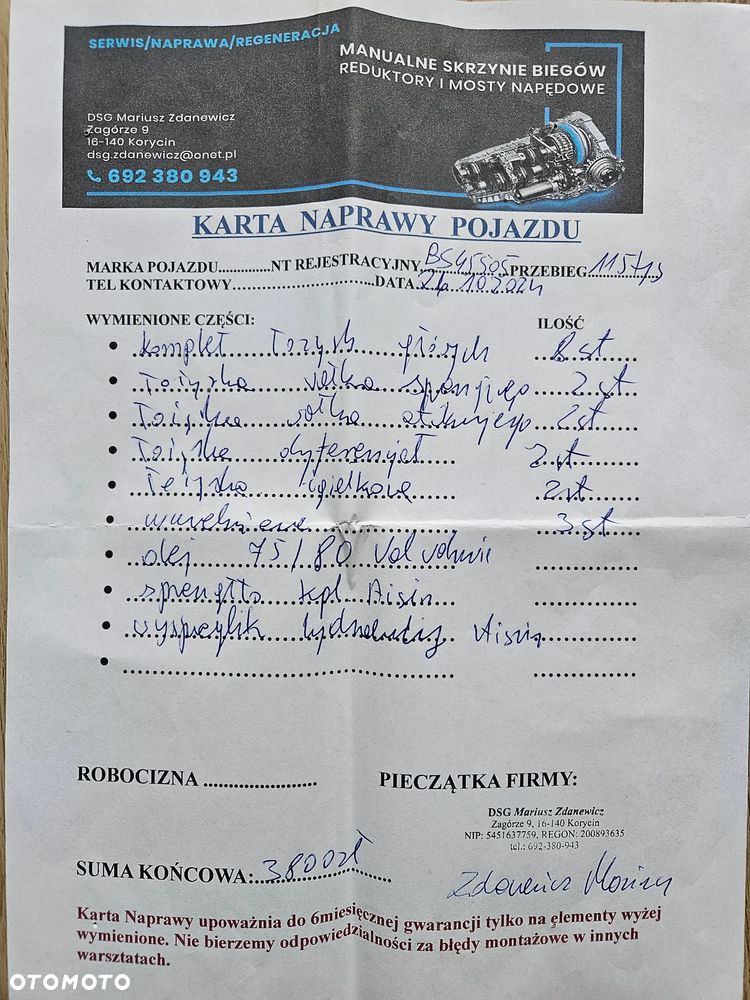 SERWIS/NAPRAWA/REGENERACJA
MANUALNE SKRZYNIE BIEGÓW
REDUKTORY I MOSTY NAPĘDOWE
DSG Mariusz Zdanewicz
Zagórze 9
16-140 Korycin
dsg.zdanewicz@onet.pl
692 380 943
KARTA NAPRAWY POJAZDU
MARKA POJAZDU.............NT REJESTRACYJNY BS45505 PRZEBIEG 115tys
TEL KONTAKTOWY..........................DATA 24.10.2024
WYMIENIONE CZĘŚCI: ILOŚĆ
• komplet łożysk
• łożyska wałka 2 st
• łożyska wałka 2 st
• łożyska dyferencjał 2 st
• łożyska igiełkowe 2 st
• 3 st
• olej 75/80 Valvoline
• sprzęgło kpl Aisin
• wysprzęglik hydrauliczny Aisin
•
ROBOCIZNA ......................
PIECZĄTKA FIRMY:
DSG Mariusz Zdanewicz
Zagórze 9, 16-140 Korycin
NIP: 5451637759, REGON: 200893635
tel.: 692-380-943
SUMA KOŃCOWA: 3800zł
Zdanewicz Mariusz
Karta Naprawy upoważnia do 6miesięcznej gwarancji tylko na elementy wyżej
wymienione. Nie bierzemy odpowiedzialności za błędy montażowe w innych
warsztatach.
OTOMOTO